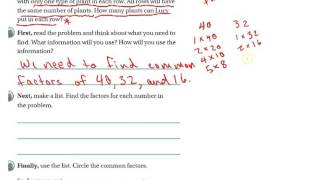 with only one type of plant in each row. All rows will
have the same number of plants. How many plants can Lucy
put in each row?
First, read the problem and think about what you need to
find. What information will you use? How will you use the
information?
We need to find common
factors of 40, 32, and 16.
Next, make a list. Find the factors for each number in
the problem.
Finally, use the list. Circle the common factors.
40 32
1 x 40 1 x 32
2 x 20 2 x 16
4 x 10
5 x 8